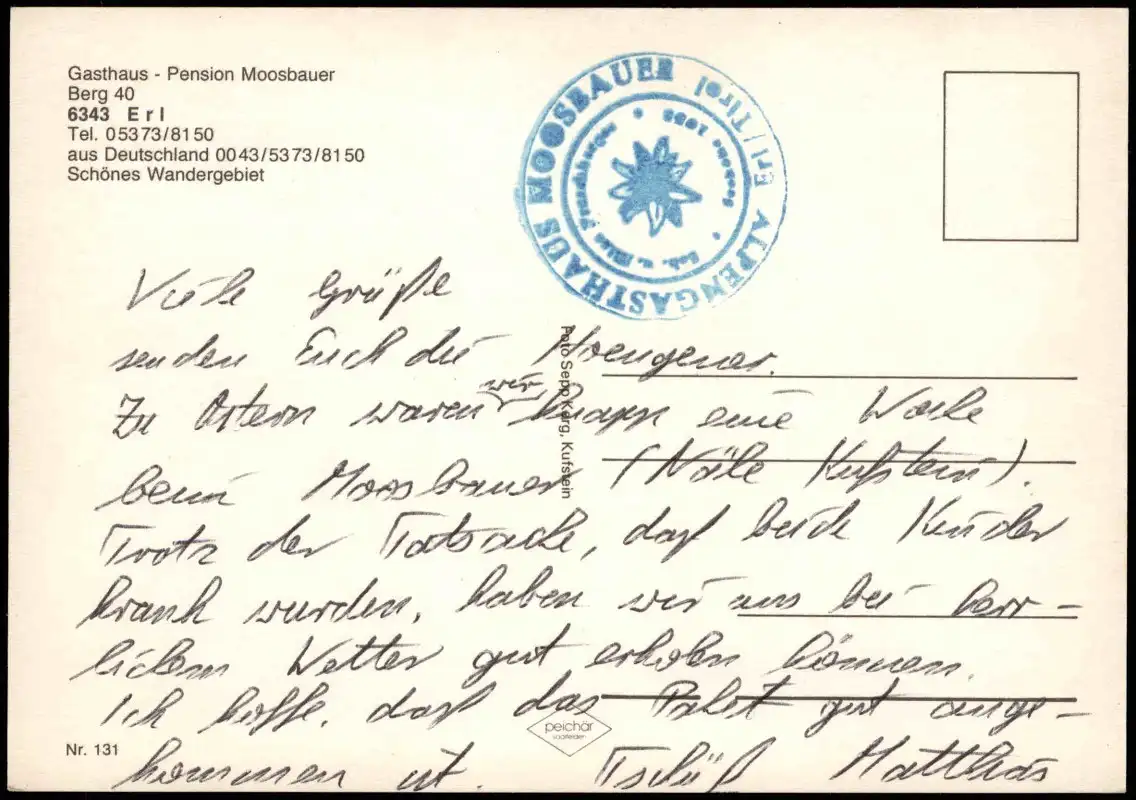 Gasthaus - Pension Moosbauer
Berg 40
6343 Erl
Tel. 05373/8150
aus Deutschland 0043/5373/8150
Schönes Wandergebiet
ALPENGASTHAUS MOOSBAUER
Erl/Tirol
Seehöhe
Viele Grüße
senden Euch die
Zu Ostern waren wir knapp eine Woche
beim Moosbauer (Nähe Kufstein).
Trotz der Tatsache, daß beide Kinder
krank wurden, haben wir uns bei herr-
lichem Wetter gut erholen können.
Ich hoffe, daß das Paket gut ange-
kommen ist. Tschüß Matthias
Foto Sepp Karg, Kufstein
peichär
saalfelden
Nr. 131